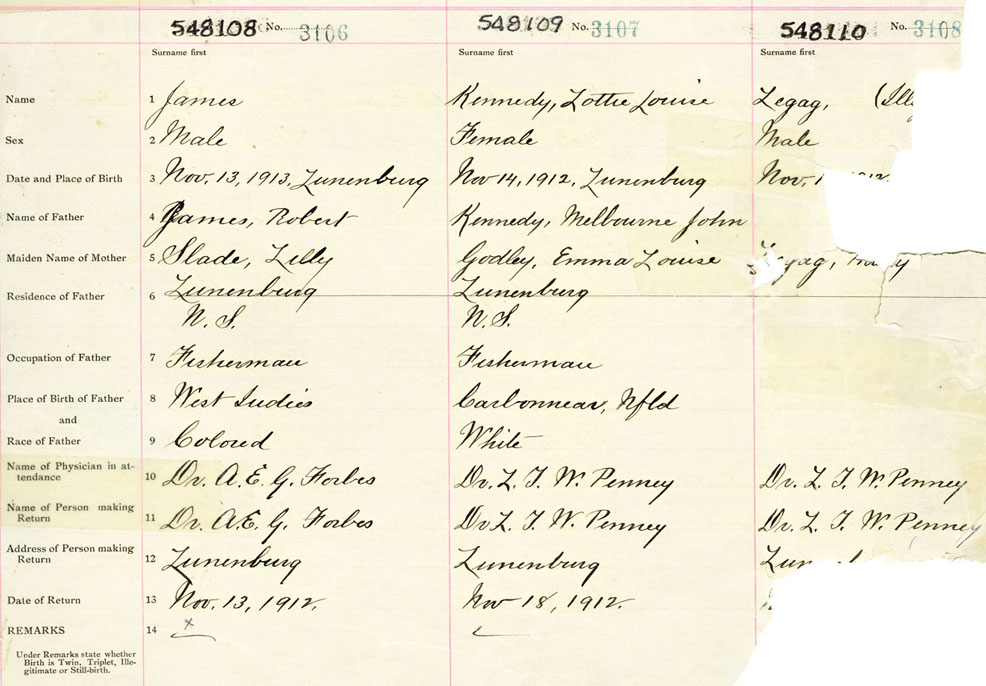 548108 No. 3106 548109 No. 3107 548110 No. 3108
Surname first Surname first Surname first
Name 1 James Kennedy, Lottie Louise Legag, (Ill
Sex 2 Male Female Male
Date and Place of Birth 3 Nov. 13, 1913, Lunenburg Nov 14, 1912, Lunenburg Nov. 1 1912
Name of Father 4 James, Robert Kennedy, Melbourne John
Maiden Name of Mother 5 Slade, Lilly Godley, Emma Louise
Residence of Father 6 Lunenburg Lunenburg
N. S. N. S.
Occupation of Father 7 Fisherman Fisherman
Place of Birth of Father 8 West Indies Carbonnear, Nfld
and
Race of Father 9 Colored White
Name of Physician in at-
tendance 10 Dr. A. E. G. Forbes Dr. L. T. W. Penney Dr. L. T. W. Penney
Name of Person making
Return 11 Dr. A. E. G. Forbes Dr L. T. W. Penney Dr. L. T. W. Penney
Address of Person making
Return 12 Lunenburg Lunenburg
Date of Return 13 Nov. 13, 1912. Nov 18, 1912.
REMARKS 14 x
Under Remarks state whether
Birth is Twin, Triplet, Ille-
gitimate or Still-birth.